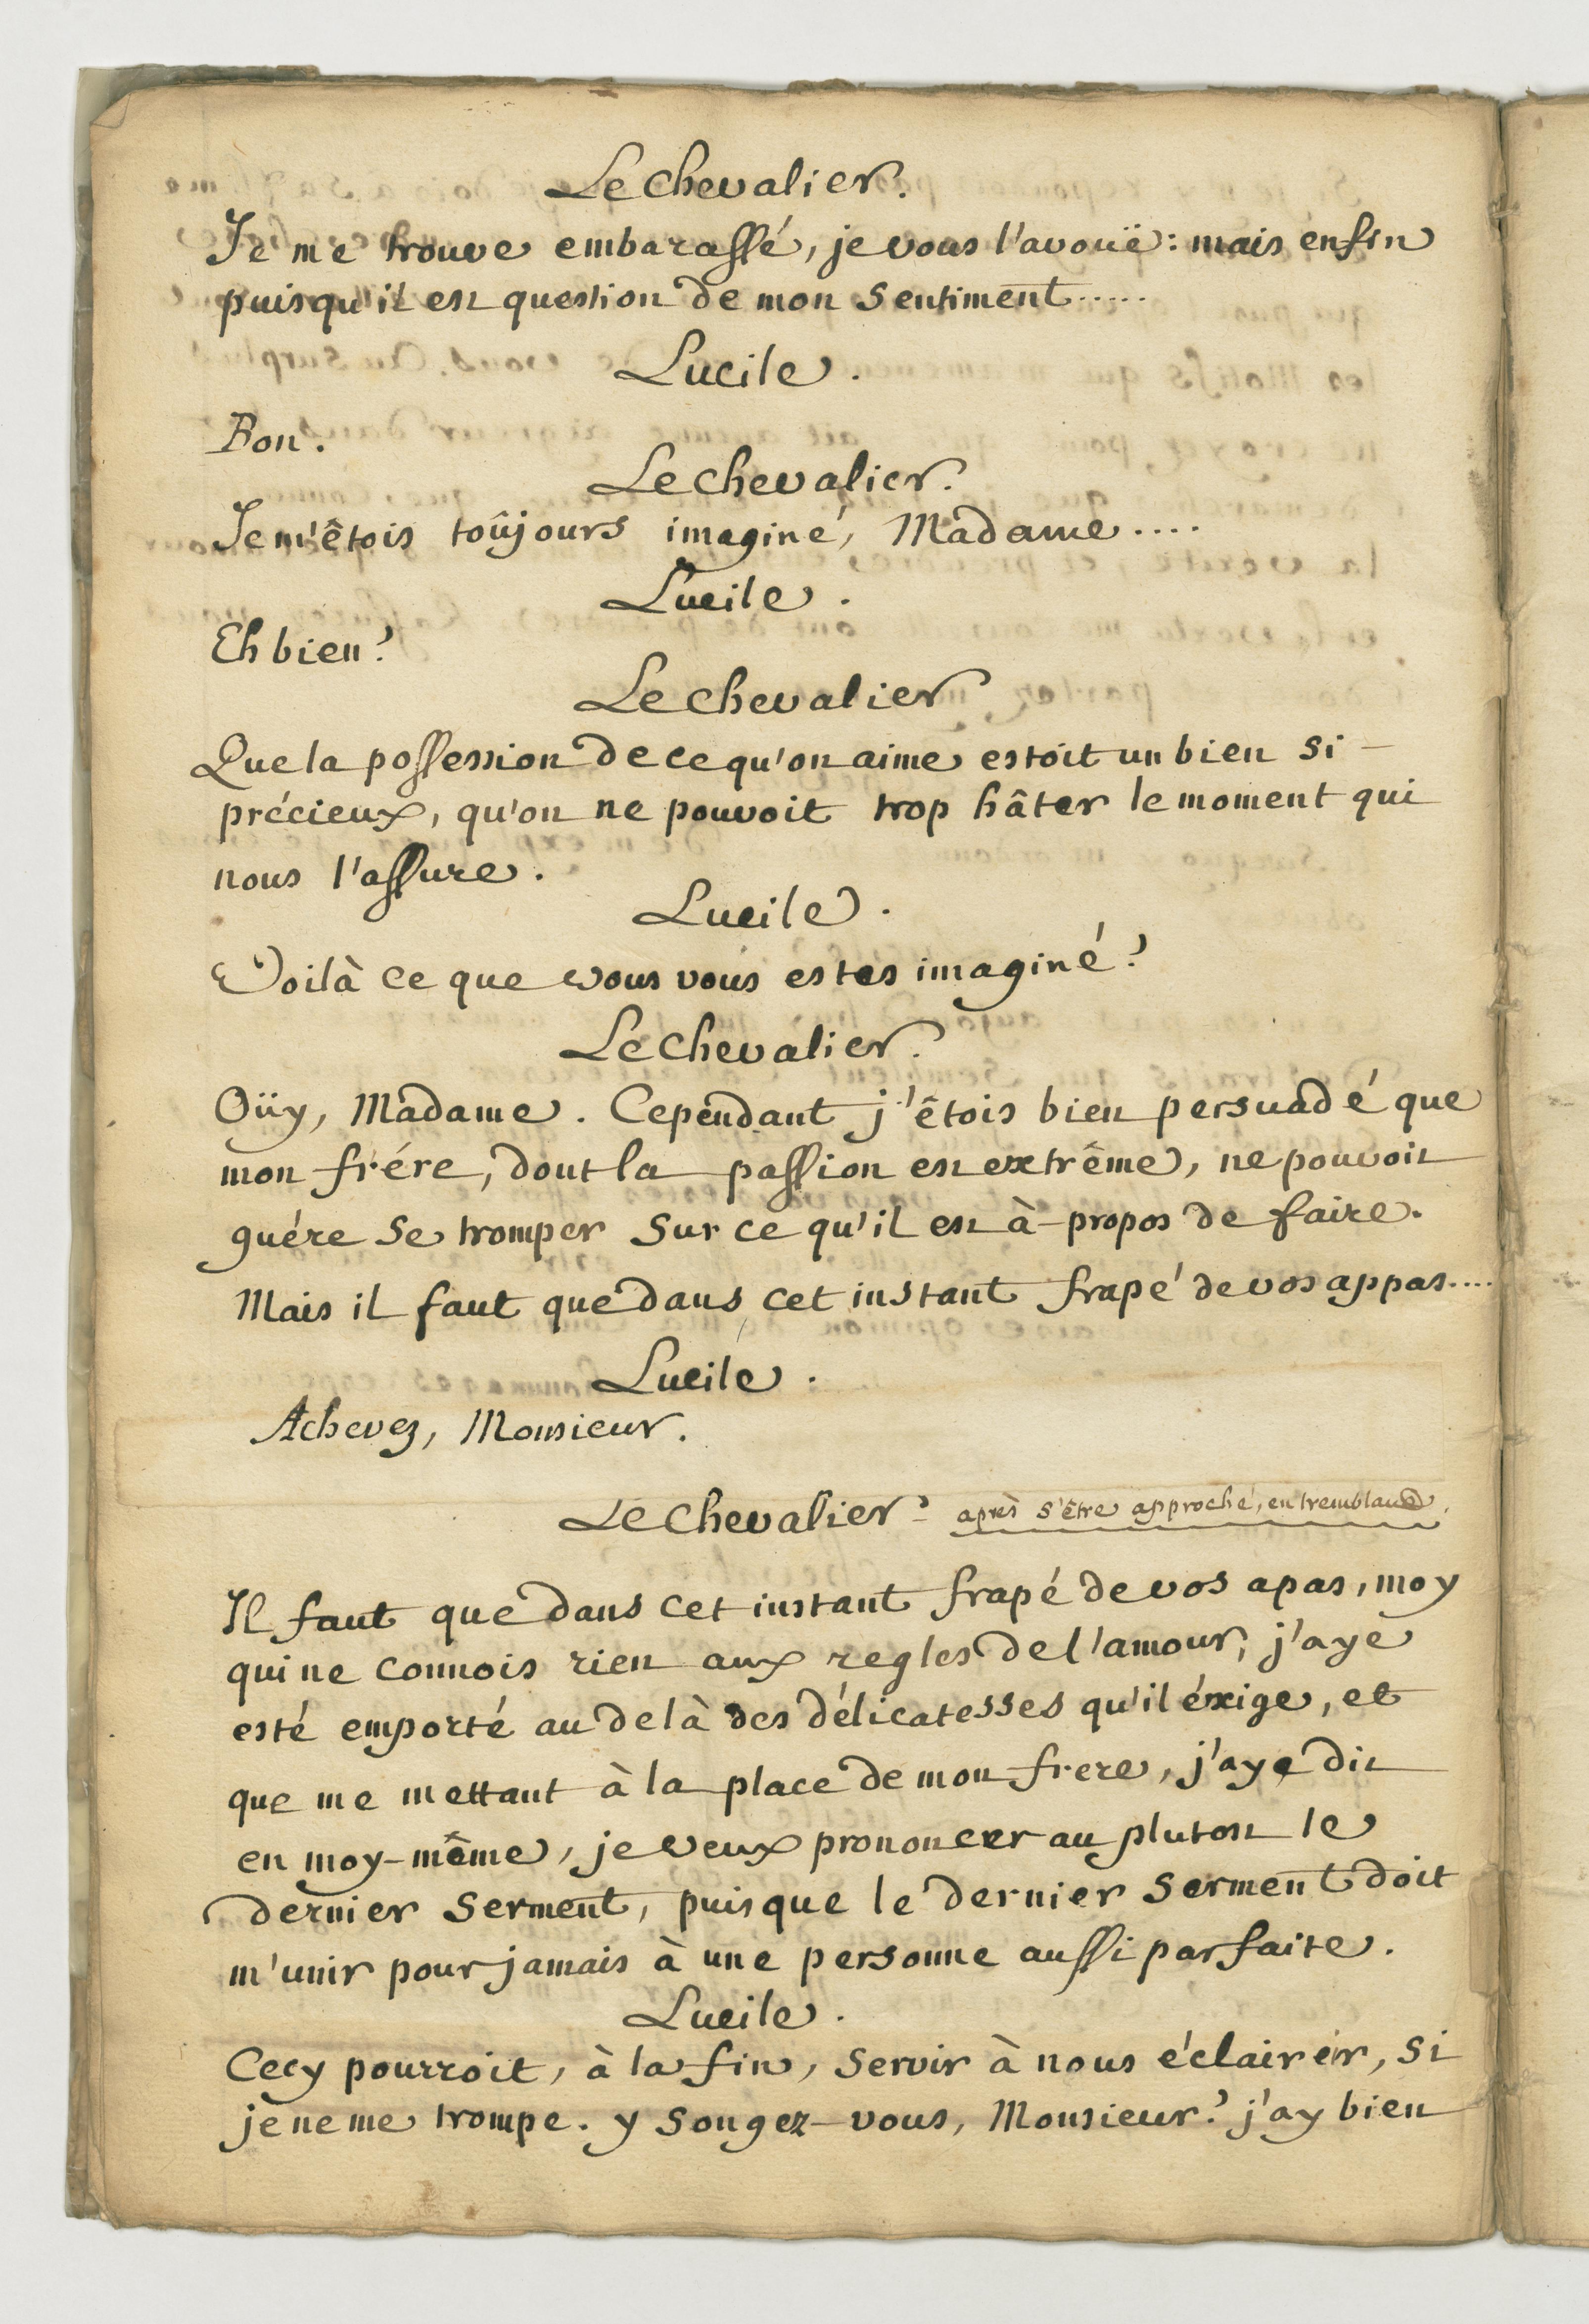 Le Chevalier.
Je me trouve embarassé, je vous l'avoüe: mais enfin
puisqu'il est question de mon sentiment.....
Lucile.
Bon.
Le Chevalier.
Je m'êtois toûjours imaginé, Madame....
Lucile.
Eh bien?
Le Chevalier
Que la possession de ce qu'on aime estoit un bien si
précieux, qu'on ne pouvoit trop hâter le moment qui
nous l'assure.
Lucile.
Voilà ce que vous vous estes imaginé?
Le Chevalier.
Oüy, Madame. Cependant j'êtois bien persuadé que
mon frére, dont la passion est extrême, ne pouvoit
guére se tromper sur ce qu'il est à-propos de faire.
Mais il faut que dans cet instant frapé de vos appas....
Lucile.
Achevez, Monsieur.
Le Chevalier. après s'être approché, en tremblant.
Il faut que dans cet instant frapé de vos apas, moy
qui ne connois rien aux regles de l'amour, j'aye
esté emporté au delà des délicatesses qu'il éxige, et
que me mettant à la place de mon frere, j'aye dit
en moy-même, je veux prononcer au plutost le
dernier serment, puisque le dernier serment doit
m'unir pour jamais à une personne aussi parfaite.
Lucile.
Cecy pourroit, à la fin, servir à nous éclairér, si
je ne me trompe. y songez-vous, Monsieur? j'ay bien